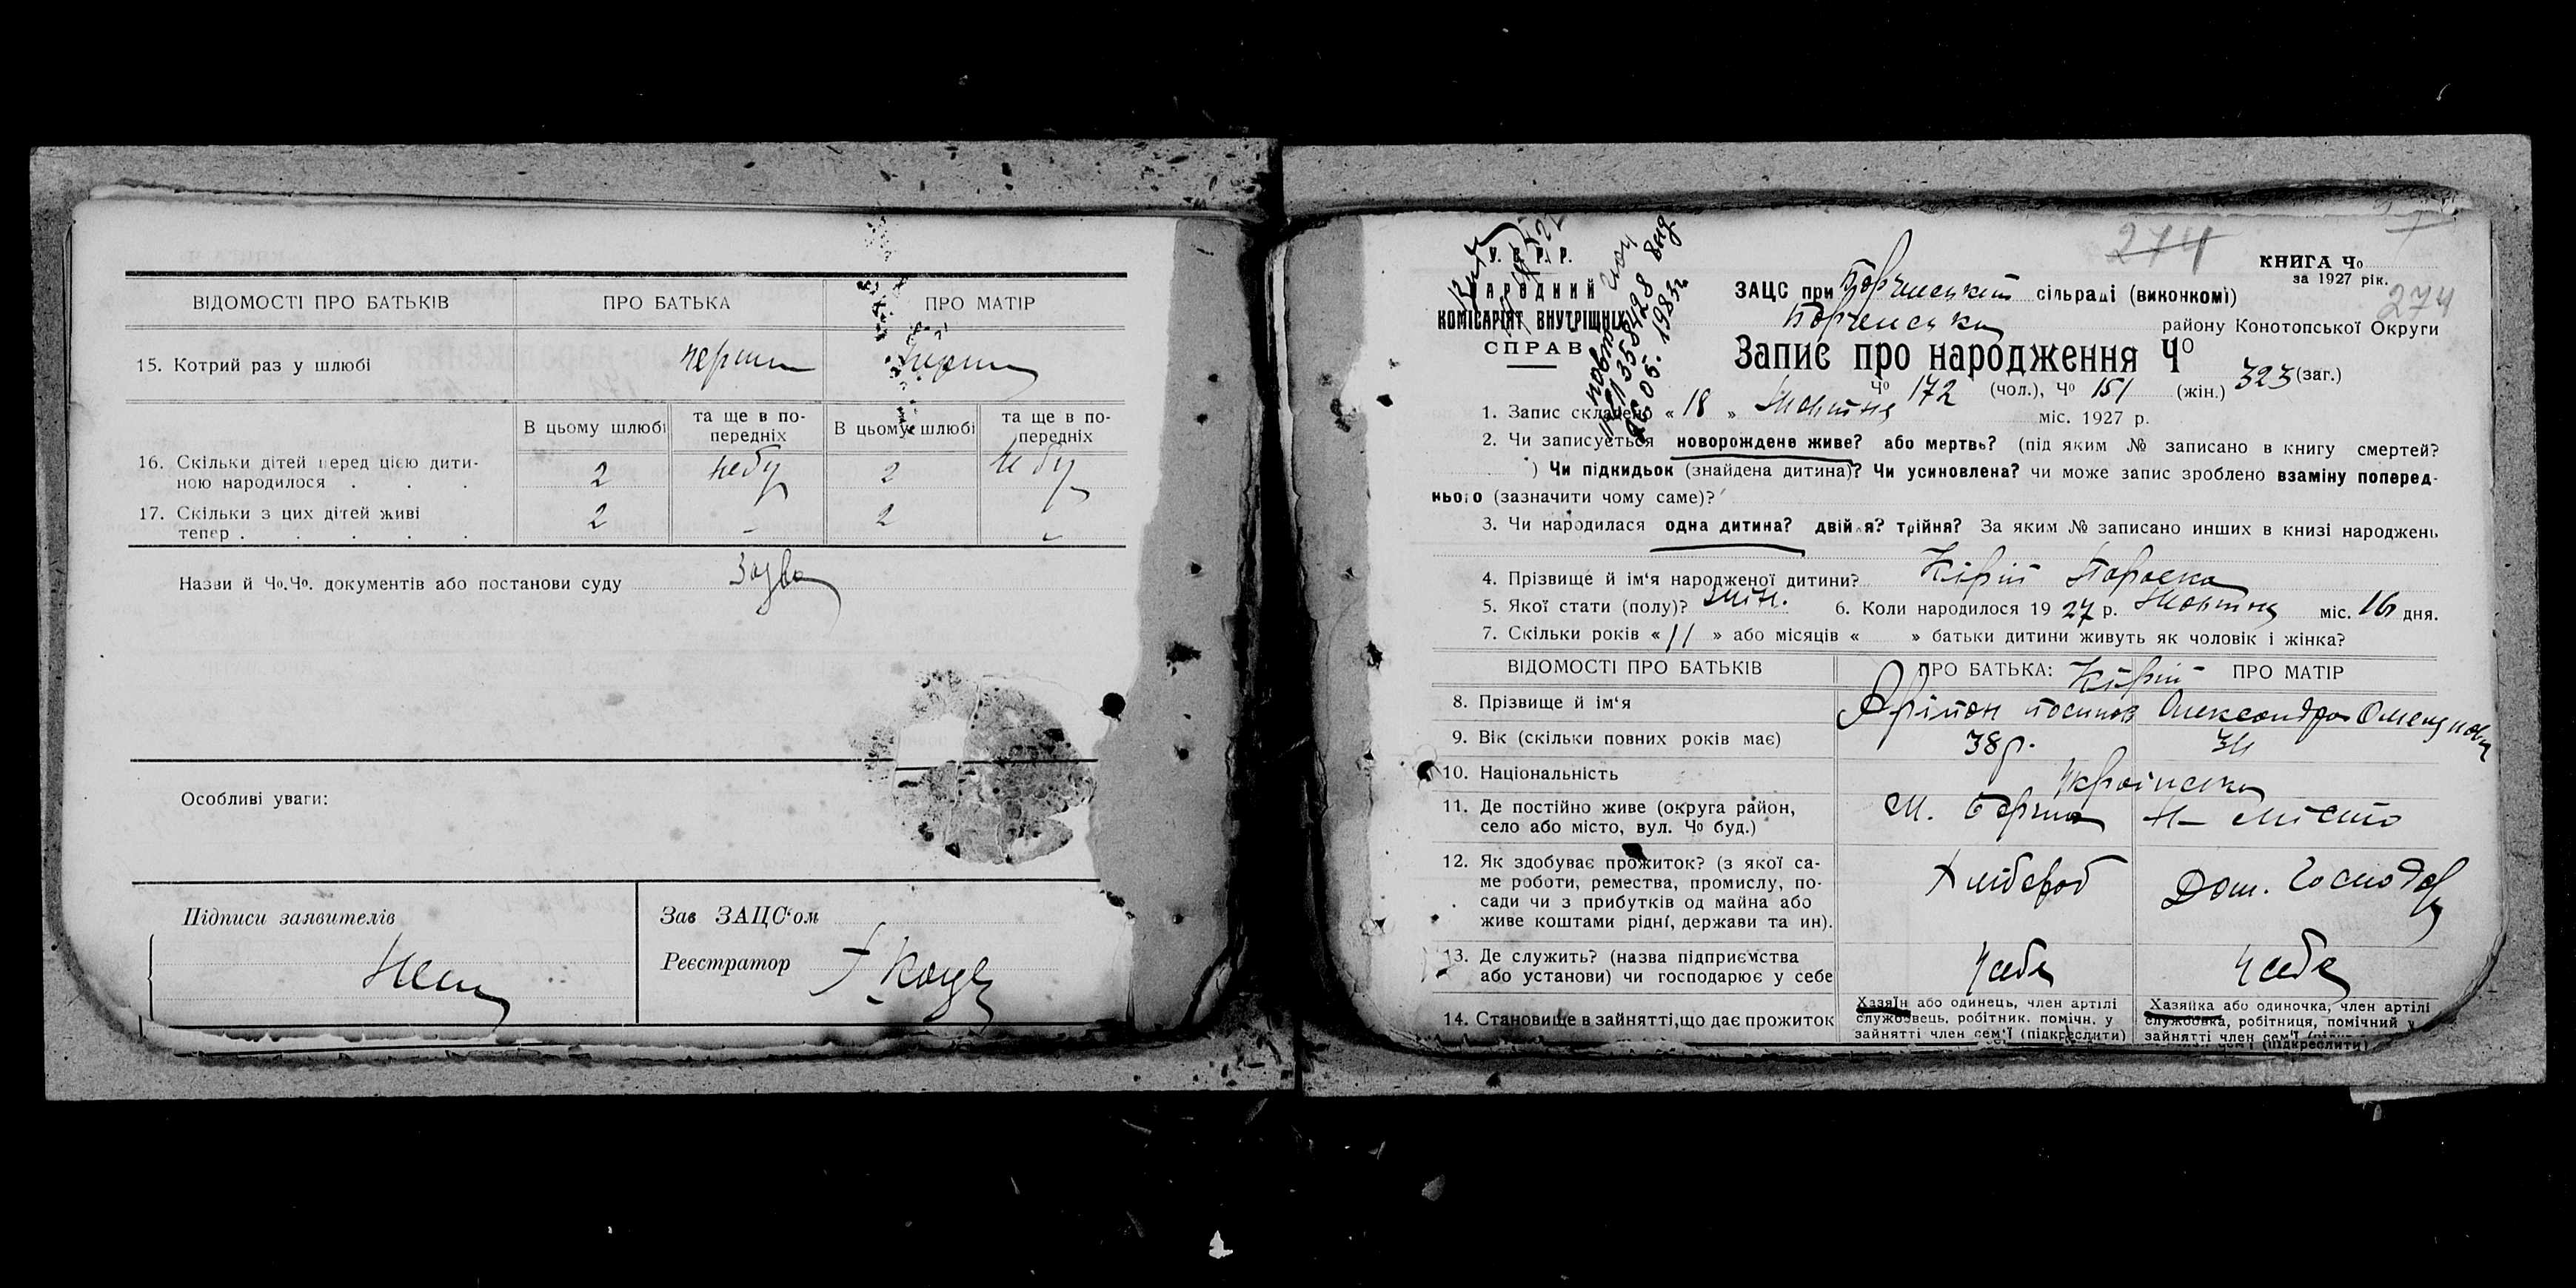 ВІДОМОСТІ ПРО БАТЬКІВ ПРО БАТЬКА ПРО МАТІР
15. Котрий раз у шлюбі перший перший
В цьому шлюбі та ще в по-передніх В цьому шлюбі та ще в по-передніх
16. Скільки дітей перед цією дити-
ною народилося . . . 2 небу 2 небу
17. Скільки з цих дітей живі
тепер . . . . . 2 - 2 -
Назви й Чо.Чо. документів або постанови суду Заява
Особливі уваги:
Підписи заявителів
Зав ЗАЦС‘ом
Реєстратор
274
КНИГА Чо
за 1927 рік.
274
У. С. Р. Р.
НАРОДНИЙ
КОМІСАРІЯТ ВНУТРІШНІХ
СПРАВ
повтор
358428 выд
26.05.1983г
ЗАЦС при Борзенській сільраді (виконкомі)
Борзенськ району Конотопської Округи
Запис про народження Чо
Чо 172 (чол.), Чо 151 (жін.) 323 (заг.)
1. Запис складено « 18 » Жовтня міс. 1927 р.
2. Чи записується новорождене живе? або мертве? (під яким № записано в книгу смертей?
) Чи підкидьок (знайдена дитина)? Чи усиновлена? чи може запис зроблено взаміну поперед-
нього (зазначити чому саме)?
3. Чи народилася одна дитина? двійня? трійня? За яким № записано инших в книзі народжень
4. Прізвище й ім‘я народженої дитини? Кирій Параска
5. Якої стати (полу)? жін. 6. Коли народилося 19 27 р. Жовтня міс. 16 дня.
7. Скільки років « 11 » або місяців « » батьки дитини живуть як чоловік і жінка?
ВІДОМОСТІ ПРО БАТЬКІВ ПРО БАТЬКА: ПРО МАТІР
Кирій
8. Прізвище й ім‘я Осипов Олександра
9. Вік (скільки повних років має) 38р. 34
10. Національність Українська
11. Де постійно живе (округа район,
село або місто, вул. Чо буд.) м. Борзна Н- місто
12. Як здобуває прожиток? (з якої са-
ме роботи, ремества, промислу, по-
сади чи з прибутків од майна або
живе коштами рідні, держави та ин). Хлібороб Дом. господар
13. Де служить? (назва підприємства
або установи) чи господарює у себе У себе У себе
14. Становище в зайнятті,що дає прожиток
Хазяїн або одинець, член артілі
службовець, робітник. помічн. у
зайнятті член сем‘ї (підкреслити)
Хазяйка або одиночка, член артілі
службовка, робітниця, помічний у
зайнятті член сем‘ї (підкреслити)